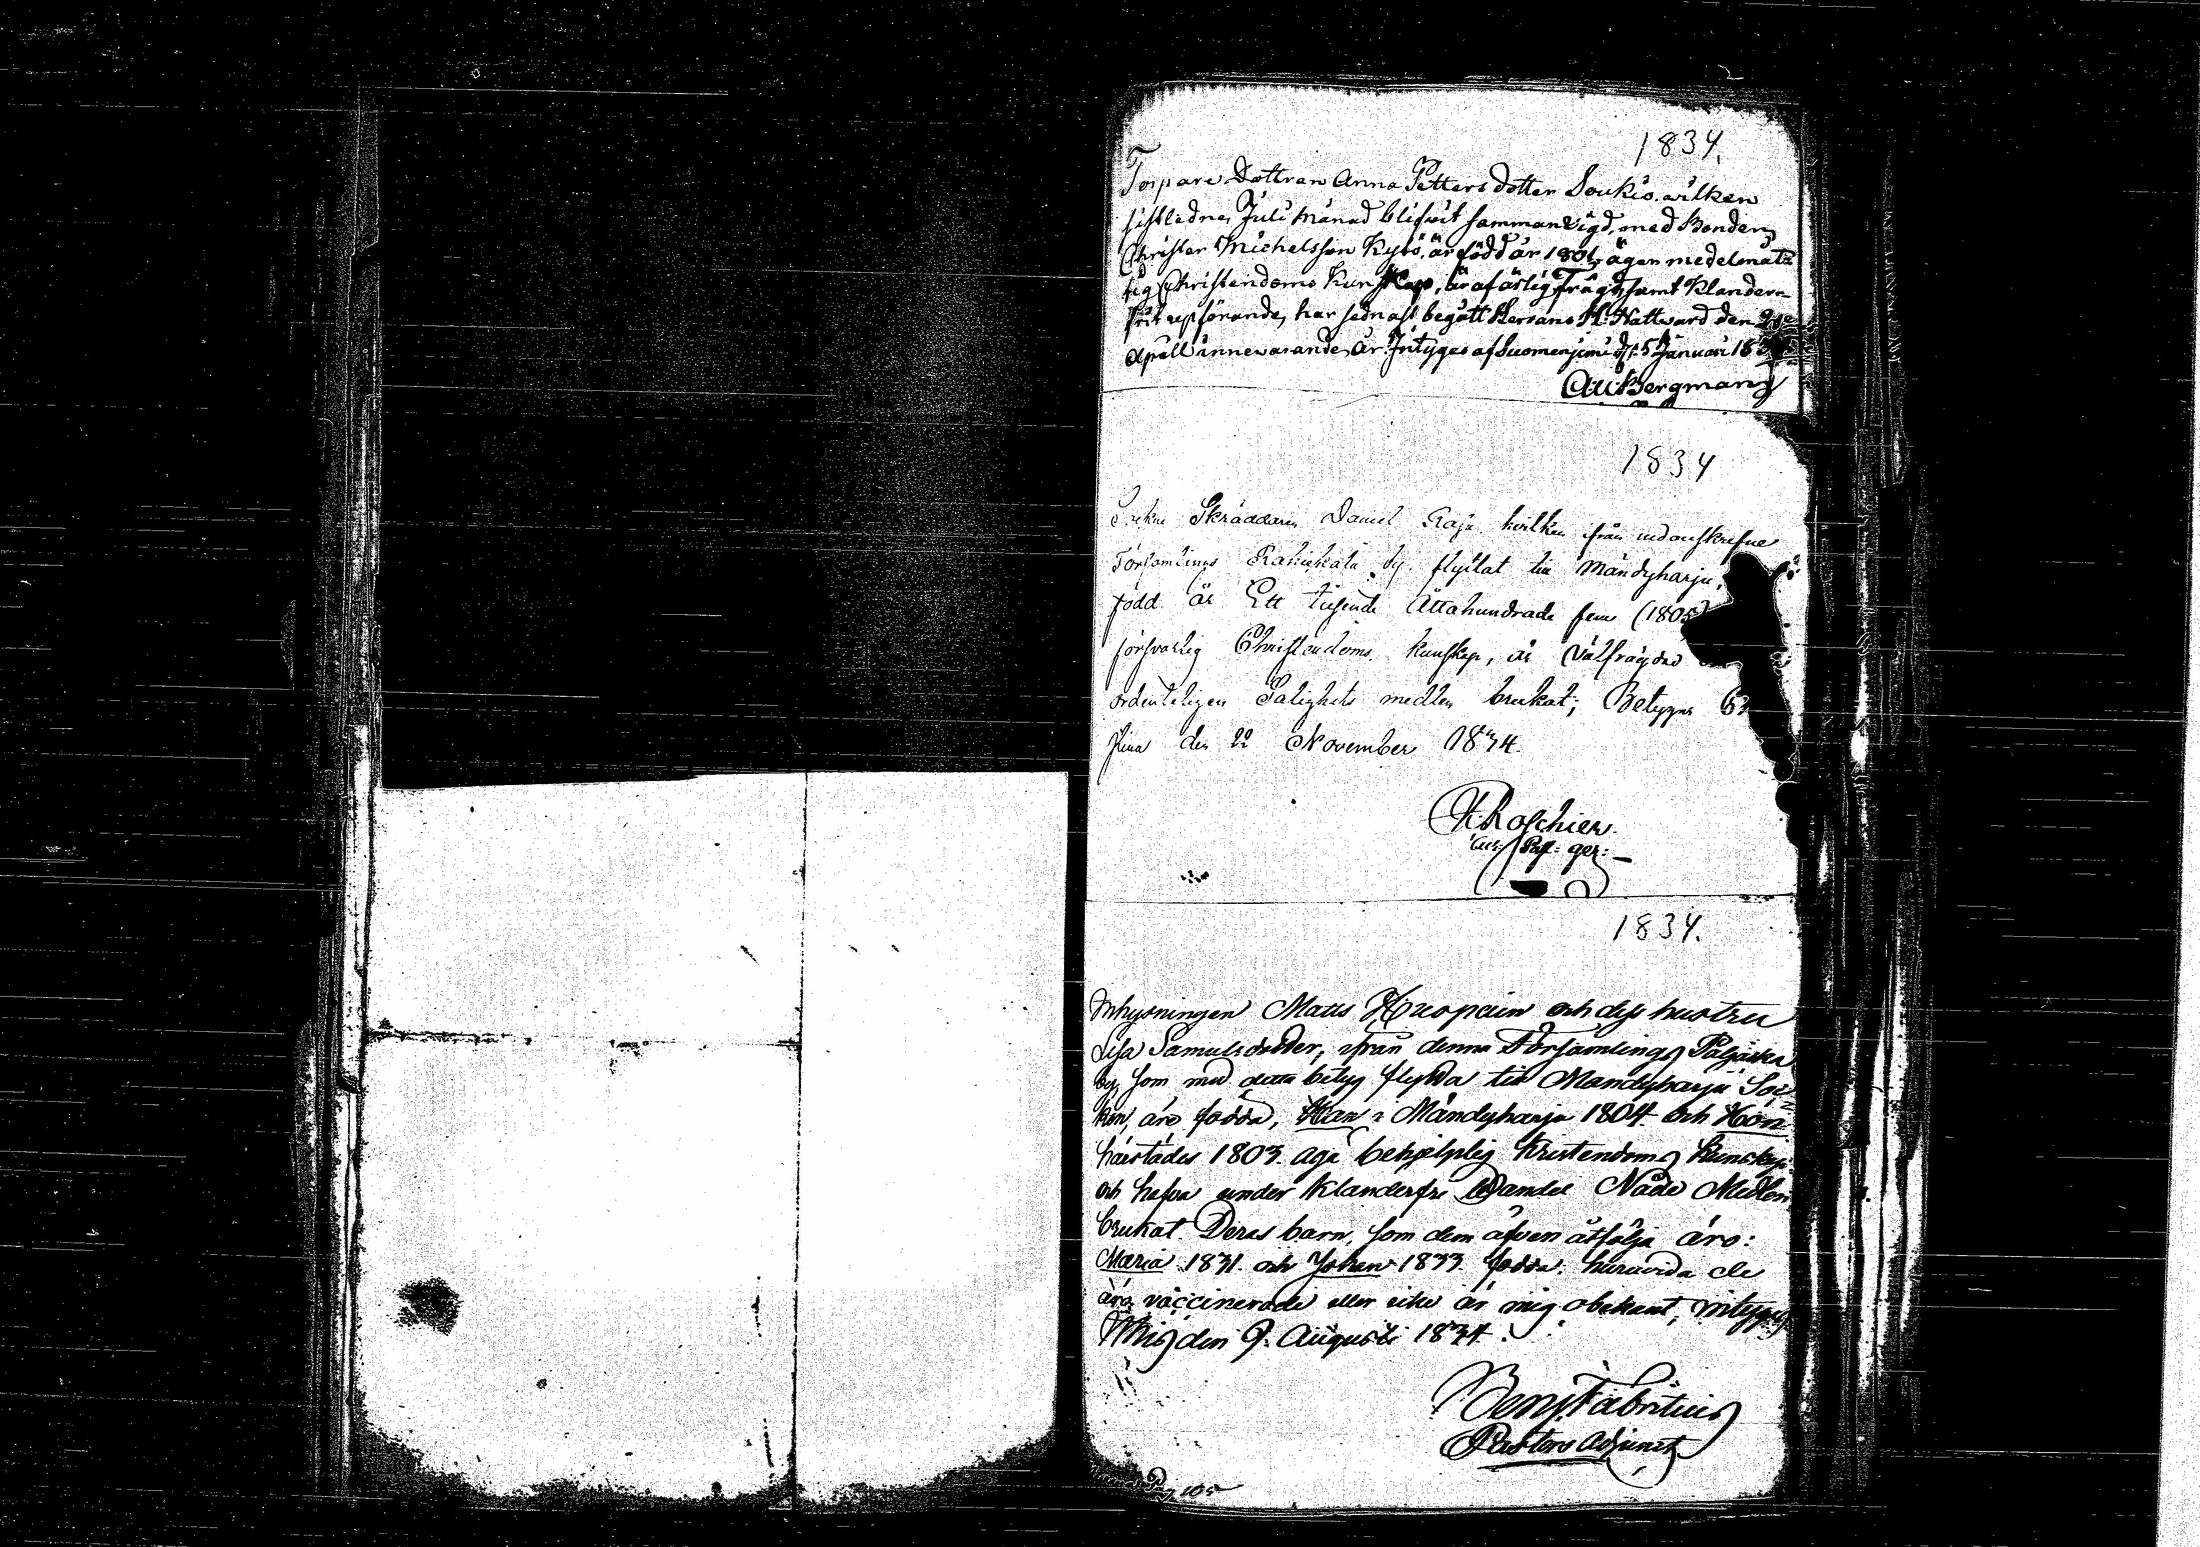 1834.
Torpare Dottren Anna Petters dotter Soukio. wilken
sistledne Juli Månad blifwit sammanwigd, med Bonden
Christer Michelsson Kyrö, är född år 1801, äger medelmåt-
tig Christendoms Kunskap, är af ärlig Frägd samt Klander-
fritt upförande, har sednast begått Herrans H. Nattward den
April innewarande år. Intygas af Suomenjemi d. 5 Januari 18
Bergman
1834
Skräddaren Daniel Raja hvilken från
Församlings by. flyttat till Mändyharju,
född år Ett tusende Åttahundrade fem (1805)
försvarlig Christendoms kunskap, är Välfrägdad
ordenteligen Salighets medlen brukat; Betygas
den 22 November 1834.
K Roschier
1834.
Inhysningen Matts Huopain och dess hustru
Lisa Samulsdotter, ifrån denna Församlings
by som med detta betyg flytta till Mandyharju Soc-
ken, äro födda, Han i Mändyharju 1804. och Hon
härstädes 1803. äga behjelplig Kristendoms Kunskap
och hafva under Klanderfri Wandel Nåde Medlen
brukat. Deras barn, som dem äfven åtfölja äro:
Maria 1831. och Johan 1833. födda. huruvida de
äro vaccinerade eller icke är mig obekant, intygas
den 9. Augusti 1834.
Benj. Fabritius
Pastors Adjunct
105